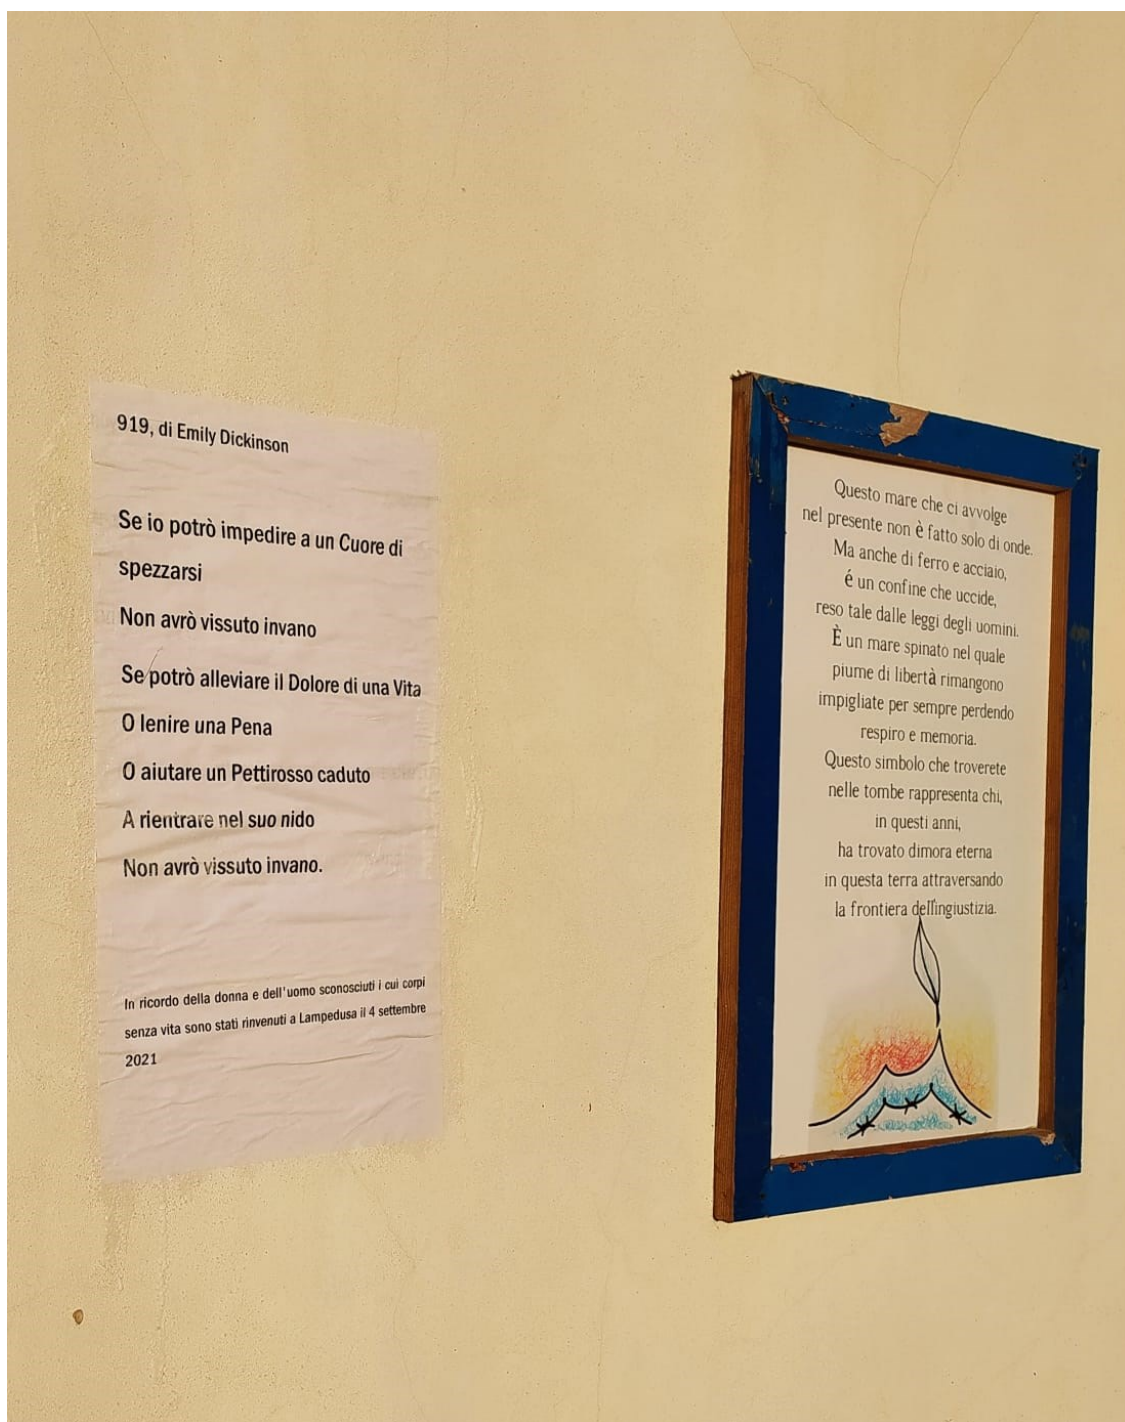 919, di Emily Dickinson
Se io potrò impedire a un Cuore di
spezzarsi
Non avrò vissuto invano
Se potrò alleviare il Dolore di una Vita
O lenire una Pena
O aiutare un Pettirosso caduto
A rientrare nel suo nido
Non avrò vissuto invano.
In ricordo della donna e dell'uomo sconosciuti i cui corpi
senza vita sono stati rinvenuti a Lampedusa il 4 settembre
2021
Questo mare che ci avvolge
nel presente non è fatto solo di onde.
Ma anche di ferro e acciaio,
é un confine che uccide,
reso tale dalle leggi degli uomini.
È un mare spinato nel quale
piume di libertà rimangono
impigliate per sempre perdendo
respiro e memoria.
Questo simbolo che troverete
nelle tombe rappresenta chi,
in questi anni,
ha trovato dimora eterna
in questa terra attraversando
la frontiera dell'ingiustizia.